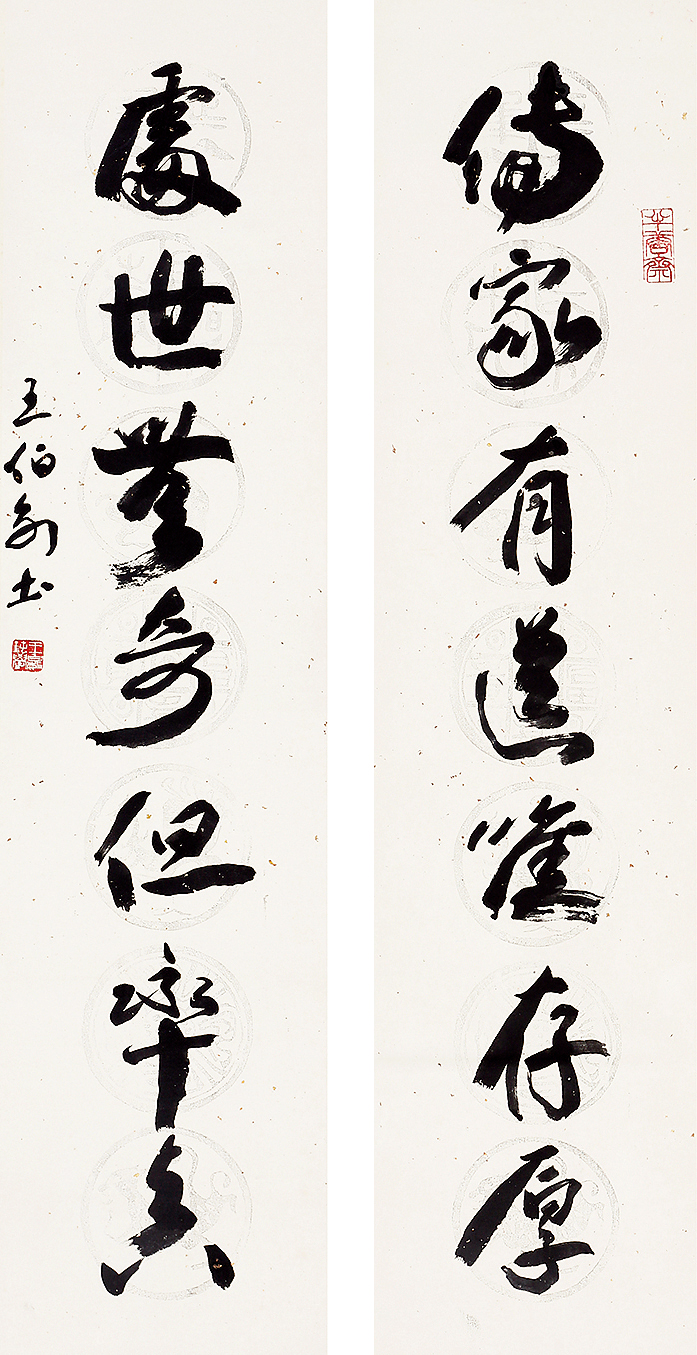 傳家有道惟存厚
處世無奇但率真
王伯敏书